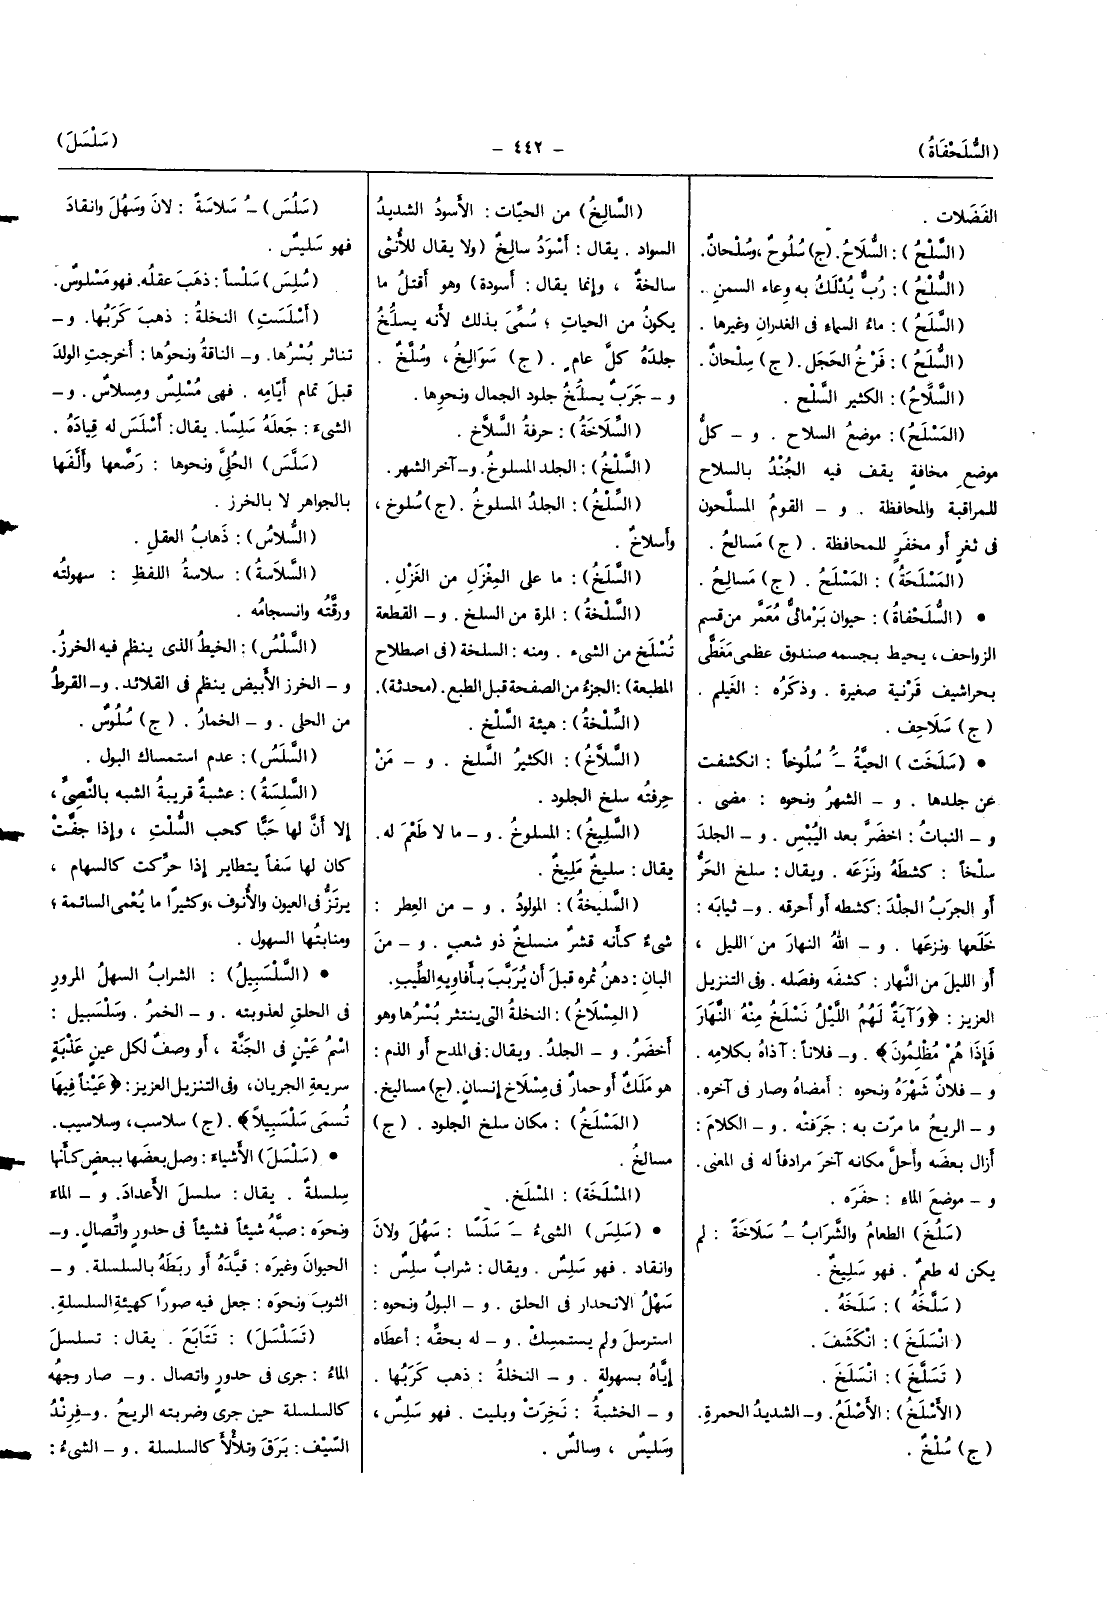 (السُّلَحْفَاةُ)
— ٤٤٢ —
(سَلْسَلَ)
الفَضَلات .
(السَّلْحُ) : السُّلَاحُ. (ج) سُلُوحٌ ،وسُلْحانٌ.
(السُّلْحُ) : رُبٌّ يُدْلَكُ به وِعاء السمنِ .
(السَّلَحُ) : ماءُ السماء فى الغدران وغيرها .
(السُّلَحُ) : فَرْخُ الحَجَل. (ج) سِلْحانٌ.
(السَّلَّاحُ) : الكثير السَّلْح .
(المَسْلَحُ): موضعُ السلاح . و – كلُّ
موضعِ مخافةٍ يقف فيه الجُنْدُ بالسلاح
للمراقبة والمحافظة . و – القومُ المسلَّحون
فى ثغرٍ أو مخفَرٍ للمحافظة . (ج) مَسالحُ .
(المَسْلَحَةُ) : المَسْلَحُ . (ج) مَسالِحُ .
• (السُّلَحْفاةُ) : حيوان بَرْمائىٌّ مُعَمَّر من قسم
الزواحف، يحيط بجسمه صندوق عظمى مَغَطًّى
بحراشيف قَرْنية صغيرة . وذكَرُه : الغَيلم .
(ج) سَلَاحِف .
• (سَلَخَت) الحيَّةُ –ُ سُلُوخاً : انكشفت
عن جلدها . و – الشهرُ ونحوه : مضى .
و – النباتُ : اخضَرَّ بعد اليُبْسِ . و – الجلدَ
سلْخاً : كشطَهُ ونَزَعَه . ويقال: سلخ الحَرُّ
أو الجرَبُ الجلْدَ : كشطه أو أحرقه . و– ثيابَه :
خَلَعها ونزعَها . و – اللهُ النهارَ من الليل ،
أو الليلَ من النَّهار : كشفَه وفصَله . وفى التنزيل
العزيز : ﴿وَآيَةٌ لَهُمُ اللَّيْلُ نَسْلَخُ مِنْهُ النَّهَارَ
فَإِذَا هُمْ مُظْلِمُونَ﴾ . و– فلاناً : آذاهُ بكلامِه .
و – فلانٌ شَهْرَهُ ونحوه : أمضاهُ وصار فى آخره.
و – الريحُ ما مرّت به : جَرَفتْه . و – الكلامَ :
أزال بعضَه وأحلَّ مكانه آخرَ مرادفاً له فى المعنى.
و – موضعَ الماء : حفَرَه .
(سَلُخَ) الطعامُ والشَّرابُ –ُ سَلَاخَةً : لم
يكن له طعمٌ . فهو سَلِيخٌ .
(سَلَّخَهُ) : سَلَخَهُ .
(انْسَلَخَ) : انْكَشَفَ .
(تَسَلَّخَ) : انْسَلَخَ .
(الأَسْلَخُ) : الأَصْلَعُ. و– الشديدُ الحمرةِ.
(ج) سُلْخٌ .
(السَّالِخُ) من الحيّات : الأَسودُ الشديدُ
السواد . يقال : أَسْوَدُ سالِخٌ (ولا يقال للأُنثى
سالخةٌ ، وإنما يقال : أسودة) وهو أَقتلُ ما
يكونُ من الحياتِ ؛ سُمِّىَ بذلك لأَنه يسلُخُ
جلدَهُ كلَّ عامٍ . (ج) سَوَالِخُ، وسُلَّخٌ .
و – جَرَبٌ يسلُخُ جلود الجمال ونحوِها .
(السِّلَاخَةُ) : حرفةُ السَّلَّاخ .
(السَّلْخُ) : الجلد المسلوخُ. و– آخر الشهر.
(السِّلْخُ) : الجلدُ المسلوخُ . (ج) سُلوخ ،
وأسلاخٌ .
(السَّلَخُ) : ما على المِغْزَلِ من الغَزْلِ .
(السَّلْخةُ) : المرة من السلخ . و – القطعة
تُسْلَخ من الشىء . ومنه : السلخة (فى اصطلاح
المطبعة) : الجزءُ من الصفحة قبل الطبع. (محدثة).
(السِّلْخةُ) : هيئة السَّلْخ .
(السَّلَّاخُ) : الكثيرُ السَّلخ . و – مَنْ
حِرفتُه سلخ الجلود .
(السَّلِيخُ) : المسلوخُ . و – ما لا طَعْمَ له.
يقال : سليخٌ مَلِيخٌ .
(السَّلِيخةُ) : المولودُ . و – من العِطر :
شىءٌ كأنه قشرٌ منسلخٌ ذو شعبٍ . و – منَ
البانِ : دهنُ ثمره قبلَ أن يُرَبَّبَ بأفاويه الطِّيبِ.
(المِسْلَاخُ) : النخلة التى ينتثر بُسْرُها وهو
أخضَرُ. و – الجلدُ. ويقال: فى المدح أو الذم :
هو مَلَكٌ أو حمارٌ فى مِسْلَاخ إنسانٍ. (ج) مساليخ.
(المَسْلَخُ) : مكان سلخ الجلود . (ج)
مسالخُ .
(المَسْلَخَة) : المَسْلَخ.
• (سَلِسَ) الشىءُ –َ سَلَسًا : سَهُلَ ولانَ
وانقاد . فهو سَلِسٌ . ويقال : شرابٌ سلِسٌ :
سَهْلُ الانحدار فى الحلق . و – البولُ ونحوه :
استرسلَ ولم يستمسِكْ . و – له بحقِّه : أعطاه
إيَّاهُ بسهولةٍ . و – النخلةُ : ذهب كَرَبُها .
و – الخشبةُ : نَخِرَتْ وبليت . فهو سَلِسٌ ،
وسَليسٌ ، وسالسٌ .
(سَلُسَ) –ُ سَلاسَةً : لانَ وَسَهُلَ وانقادَ
فهو سَليسٌ .
(سُلِسَ) سَلْساً : ذهَبَ عقلُه. فهو مَسْلوسٌ.
(أَسْلَسَتِ) النخلةُ : ذهبَ كَرَبُها. و –
تناثر بُسْرُها. و– الناقةُ ونحوُها : أخرجتِ الولدَ
قبلَ تمام أيّامِه . فهى مُسْلِسٌ ومِسلاسٌ . و –
الشىءَ : جَعلَهُ سَلِسًا. يقال: أَسْلَسَ له قِيادَهُ .
(سَلَّسَ) الحُلِىَّ ونحوها : رَصَّعها وأَلَّفَها
بالجواهر لا بالخرز .
(السُّلاسُ) : ذَهابُ العقلِ .
(السَّلاسَةُ) : سلاسةُ اللفظِ : سهولتُه
ورقَّتُه وانسجامُه .
(السَّلْسُ) : الخيطُ الذى ينظم فيه الخرزُ.
و – الخرز الأَبيض ينظم فى القلائد. و– القرطُ
من الحلى . و – الخمارُ . (ج) سُلُوسٌ .
(السَّلَسُ) : عدم استمساك البول .
(السَّلِسَةُ) : عشبةٌ قريبةُ الشبه بالنَّصِىِّ ،
إلا أنَّ لها حَبًّا كحب السُّلْتِ ، وإذا جفَّتْ
كان لها سَفاً يتطاير إذا حرِّكت كالسهام ،
يرتَزُّ فى العيون والأُنوف ،وكثيرًا ما يُعْمى السائمة ؛
ومنابتُها السهول .
• (السَّلْسَبِيلُ) : الشرابُ السهلُ المرورِ
فى الحلقِ لعذوبته . و – الخمرُ . وسَلْسَبيل :
اسْمُ عَيْنٍ فى الجَنَّة ، أو وصفٌ لكل عينٍ عَذْبَةٍ
سريعةِ الجريان، وفى التنزيل العزيز : ﴿عَيْناً فِيهَا
تُسمَى سَلْسَبِيلاً﴾ . (ج) سلاسب، وسلاسيب.
• (سَلْسَلَ) الأَشياءَ : وصل بعضَها ببعضٍ كأَنها
سِلسلةٌ . يقال : سلسلَ الأَعدادَ. و – الماءَ
ونحوَه : صبَّهُ شيئاً فشيئاً فى حدورٍ واتِّصالٍ. و–
الحيوانَ وغيرَه : قيَّدَهُ أو ربَطَهُ بالسلسلة. و –
الثوبَ ونحوَه : جعل فيه صورًا كهيئةِ السلسلةِ.
(تَسَلْسَلَ) : تَتَابَعَ . يقال : تسلسلَ
الماءُ : جرى فى حدورٍ واتصال . و– صار وجهُه
كالسلسلة حين جرى وضربته الريحُ . و–فِرِنْدُ
السَّيْف : بَرَقَ وتلأْلأَ كالسلسلة . و – الشىءُ :